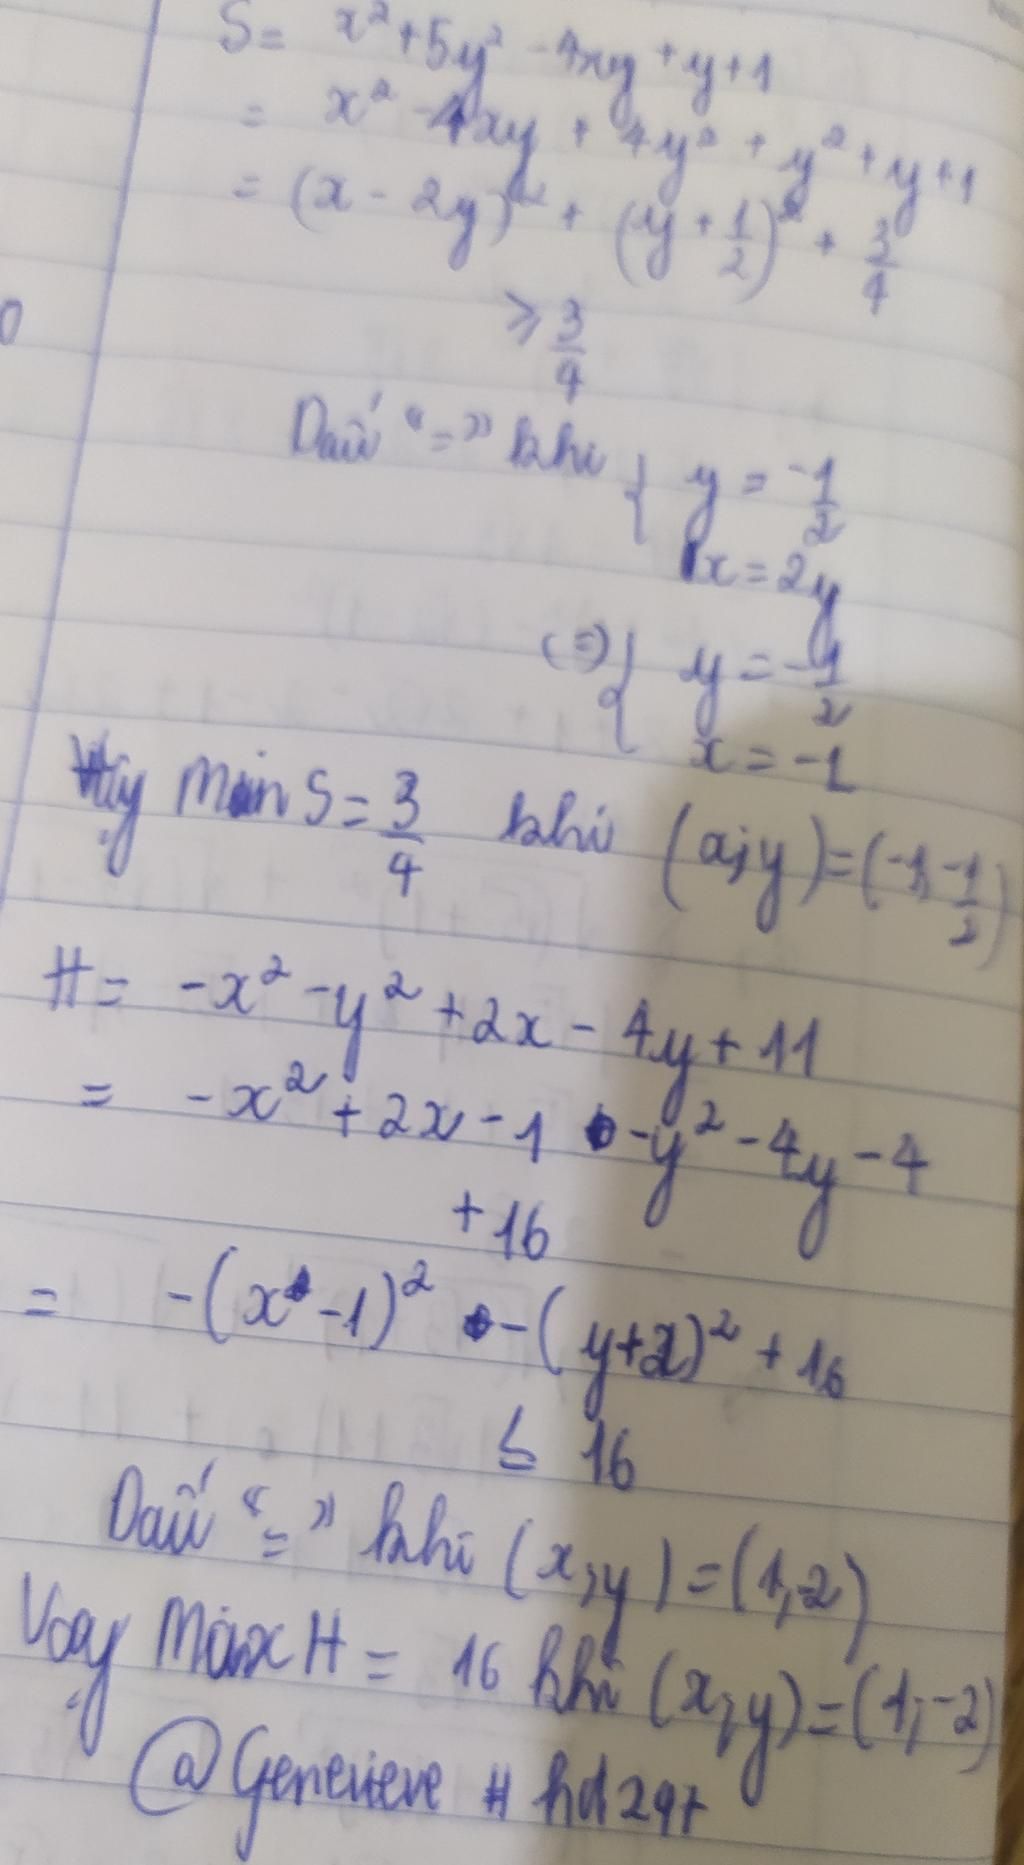 S = x² + 5y² - 4xy + y + 1
= x² - 4xy + 4y² + y² + y + 1
= (x - 2y)² + (y + 1/2)² + 3/4
≥ 3/4
Dấu "=" khi { y = -1/2
x = 2y
(=) { y = -1/2
x = -1
Vậy Min S = 3/4 khi (x;y) = (-1; -1/2)
H = -x² - y² + 2x - 4y + 11
= -x² + 2x - 1 - y² - 4y - 4
+ 16
= -(x - 1)² - (y + 2)² + 16
≤ 16
Dấu "=" khi (x;y) = (1;-2)
Vậy Max H = 16 khi (x;y) = (1;-2)
@Genevieve # hd